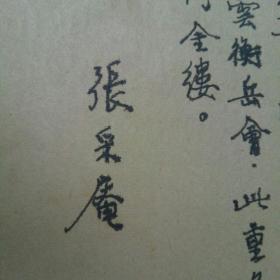 雲衡岳會．此重
金縷。
張采庵